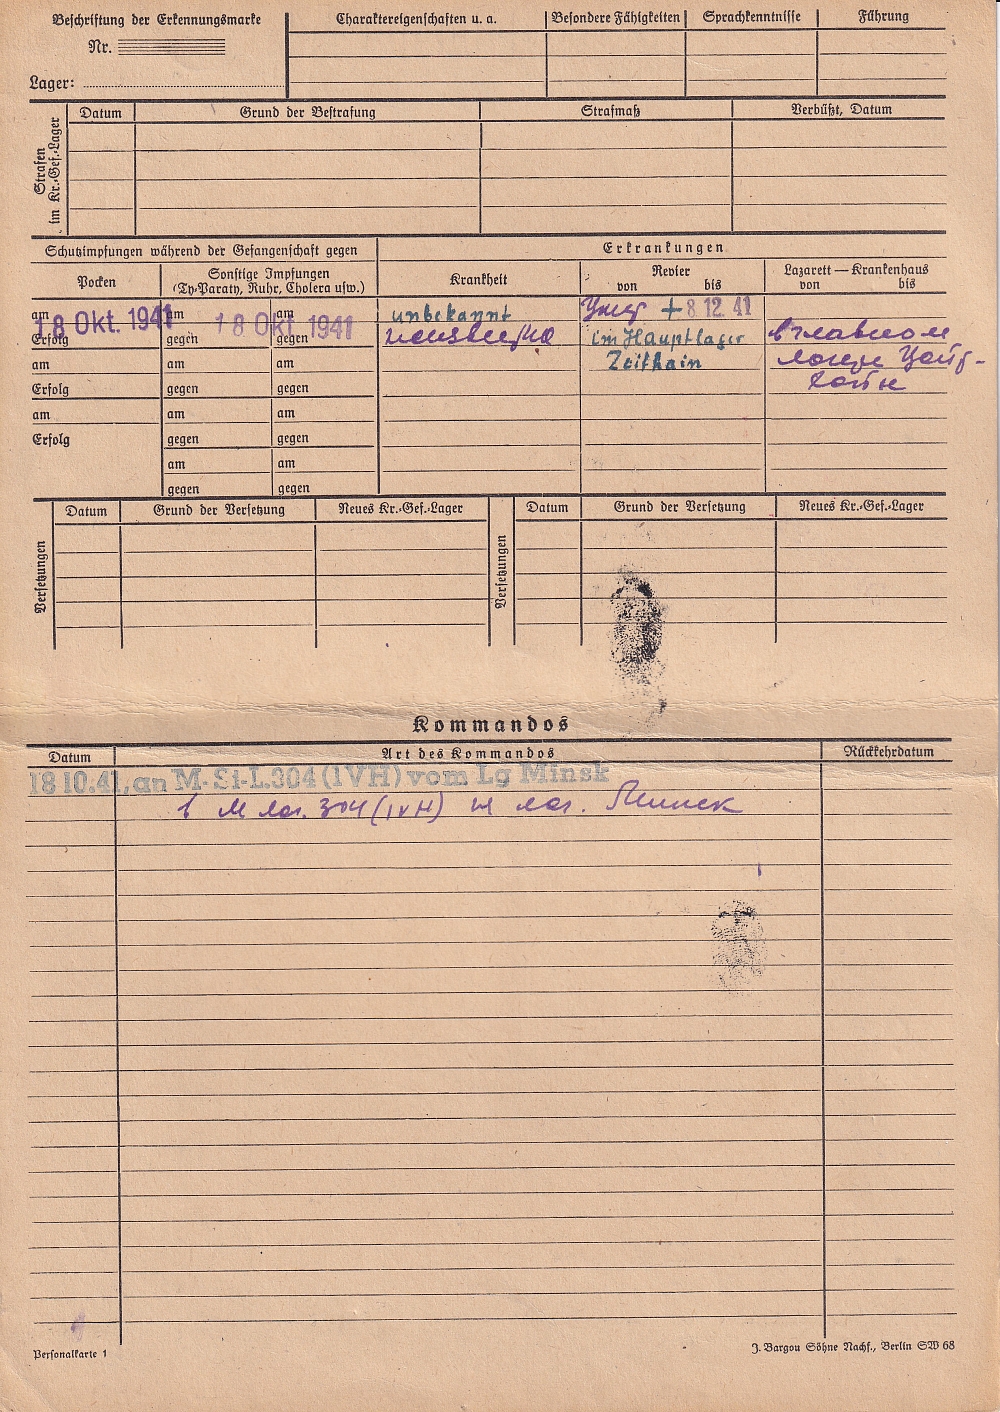 Beschriftung der Erkennungsmarke
Nr.
Lager:
Charaktereigenschaften u. a.
Besondere Fähigkeiten
Sprachkenntnisse
Führung
Strafen
im Kr.-Gef.-Lager
Datum
Grund der Bestrafung
Strafmaß
Verbüßt, Datum
Schutzimpfungen während der Gefangenschaft gegen
Erkrankungen
Pocken
Sonstige Impfungen
(Ty-Paraty, Ruhr, Cholera usw.)
Krankheit
Revier
von bis
Lazarett — Krankenhaus
von bis
am am am
18 Okt. 1941 18 Okt 1941
unbekannt
Умер + 8.12.41
Erfolg gegen gegen
неизвестно
im Hauptlager
в главном
am am am
Zeithain
лагере Цайт-
Erfolg gegen gegen
хайн
am am am
Erfolg gegen gegen
am am
gegen gegen
Versetzungen
Datum
Grund der Versetzung
Neues Kr.-Gef.-Lager
Versetzungen
Datum
Grund der Versetzung
Neues Kr.-Gef.-Lager
Kommandos
Datum
Art des Kommandos
Rückkehrdatum
18 10.41, an M-St-L.304 (IVH) vom Lg Minsk
в М лаг. 304 (IVH) из лаг. Минск
Personalkarte 1
J. Bargou Söhne Nachf., Berlin SW 68